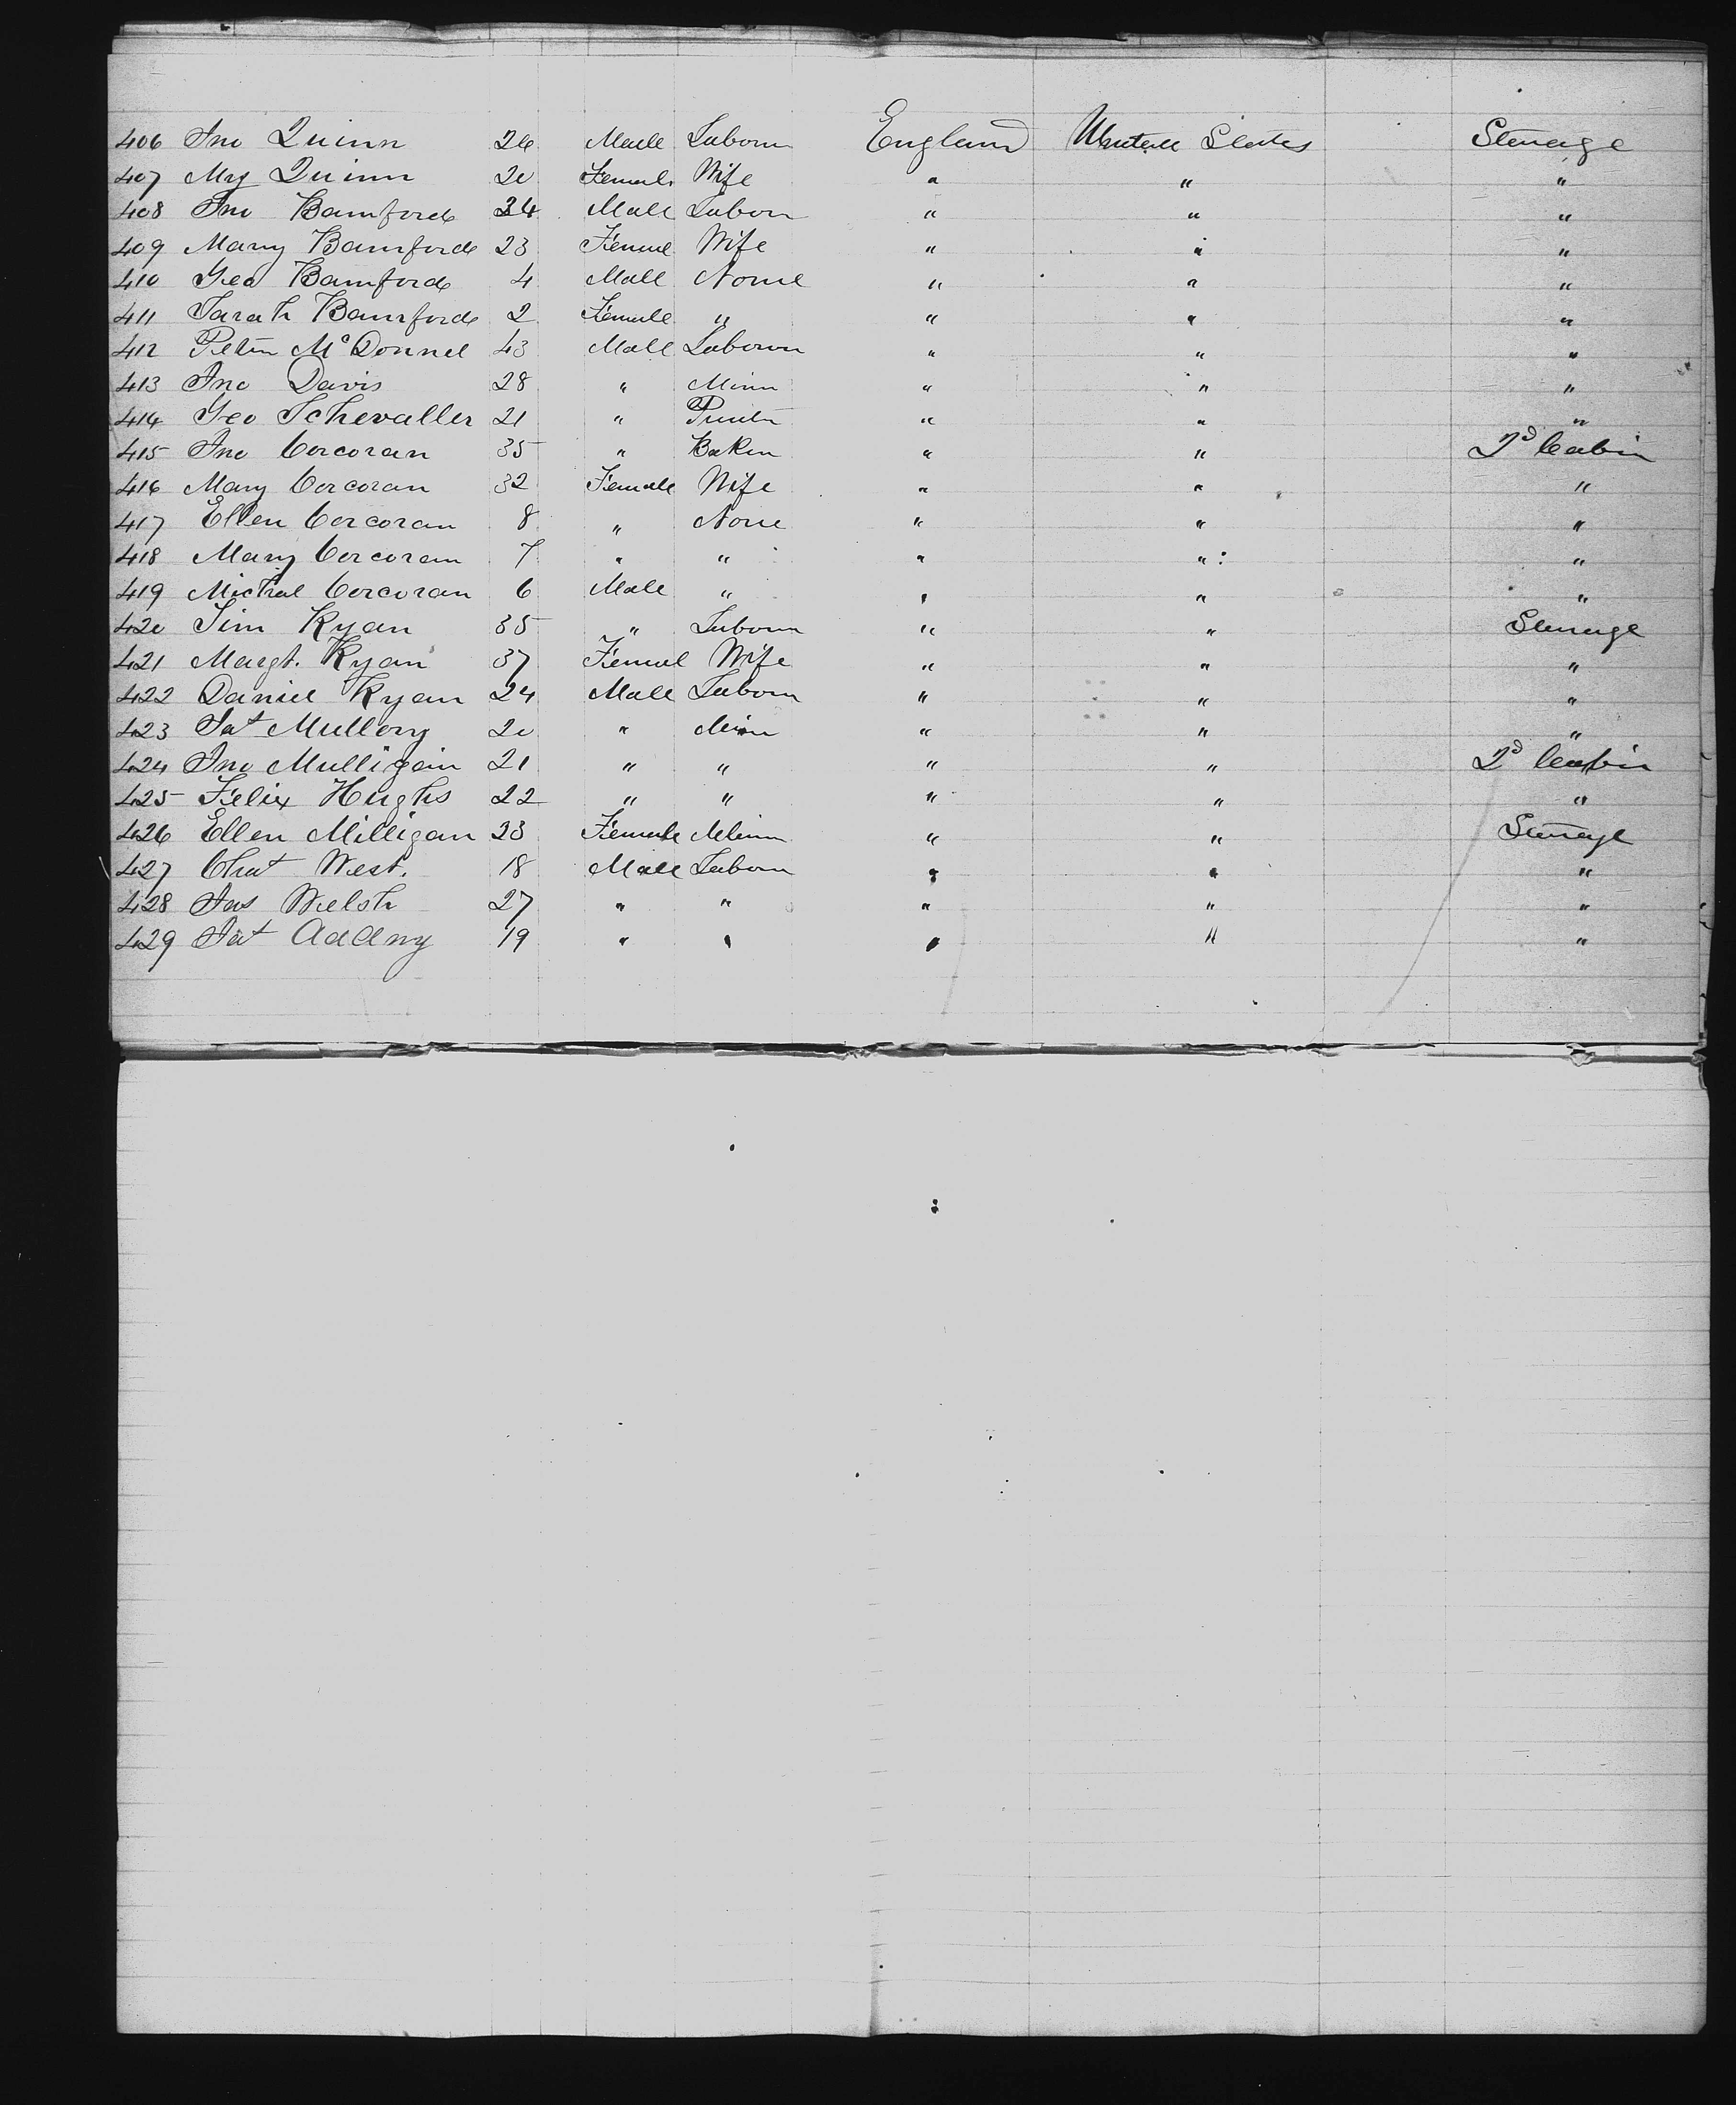 406 Jno Quinn 26 Male Laborer England United States Steerage
407 My Quinn 20 Female Wife " " "
408 Jno Bamford 24 Male Laborer " " "
409 Mary Bamford 23 Female Wife " " "
410 Geo Bamford 4 Male None " " "
411 Sarah Bamford 2 Female " " " "
412 Peter McDonnel 43 Male Laborer " " "
413 Jno Davis 28 " Miner " " "
414 Geo Schevaller 21 " Printer " " "
415 Jno Corcoran 35 " Baker " " 2d Cabin
416 Mary Corcoran 32 Female Wife " " "
417 Ellen Corcoran 8 " None " " "
418 Mary Corcoran 7 " " " " "
419 Micheal Corcoran 6 Male " " " "
420 Jim Ryan 35 " Laborer " " Steerage
421 Margt. Ryan 37 Female Wife " " "
422 Daniel Ryan 24 Male Laborer " " "
423 Pat Mullony 20 " Miner " " "
424 Jno Mulligain 21 " " " " 2d Cabin
425 Felix Hughs 22 " " " " "
426 Ellen Milligan 23 Female Miner " " Steerage
427 West. 18 Male Laborer " " "
428 Jas Welsh 27 " " " " "
429 Pat 19 " " " " "